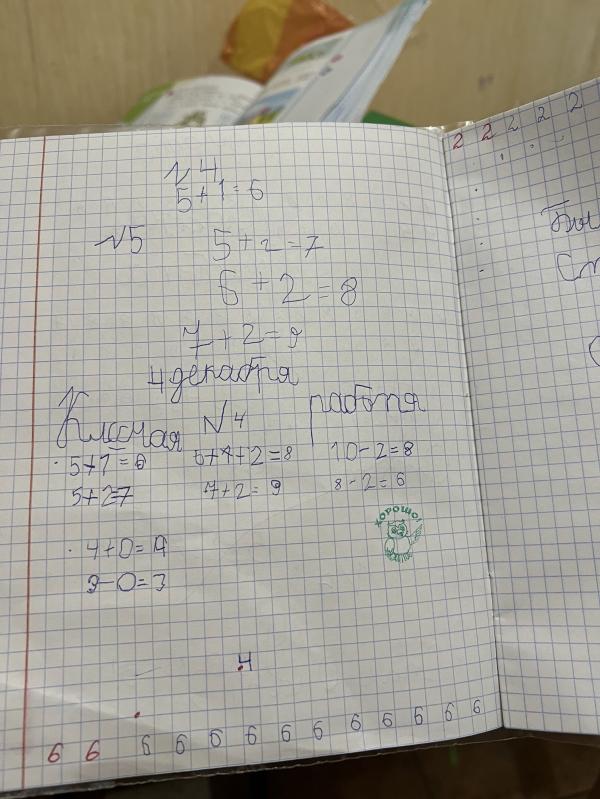 2 2 2 2 2
№4
5+1=6
№5 5+2=7
6+2=8
7+2=9
4 декабря
Классная работа
№4
5+1=6 5+1+2=8 10-2=8
5+2=7 7+2=9 8-2=6
ХОРОШО!
4+0=4
3-0=3
4
6 6 6 6 6 6 6 6 6 6 6 6 6